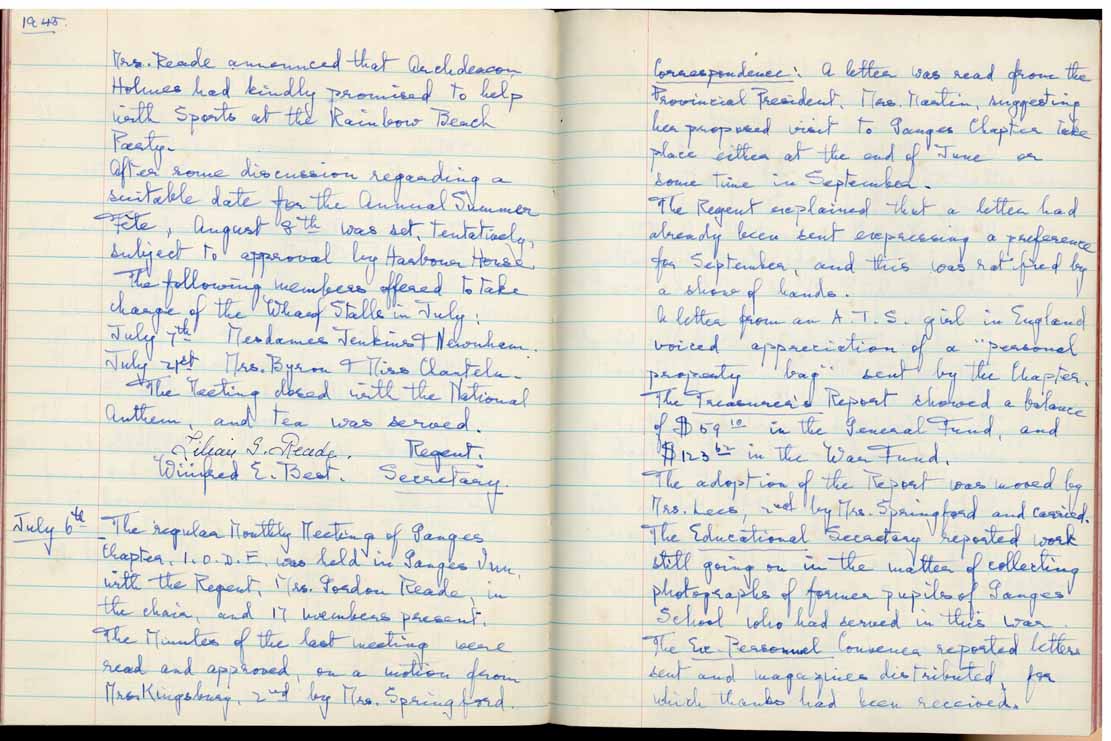 1945.
Mrs. Reade announced that Archdeacon
Holmes had kindly promised to help
with Sports at the Rainbow Beach
Party.
After some discussion regarding a
suitable date for the Annual Summer
Fête, August 8th was set, tentatively,
subject to approval by Harbour House.
The following members offered to take
charge of the Wharf Stalls in July:
July 7th Mesdames Jenkins & Newnham.
July 21st Mrs. Byron & Miss
The Meeting closed with the National
Anthem, and tea was served.
Lilian G. Reade. Regent.
Winifred E. Best. Secretary.
July 6th The regular Monthly Meeting of Ganges
Chapter, I.O.D.E. was held in Ganges Inn,
with the Regent, Mrs. Gordon Reade, in
the chair, and 17 members present.
The Minutes of the last meeting were
read and approved, on a motion from
Mrs. Kingsbury, 2nd by Mrs. Springford.
Correspondence: A letter was read from the
Provincial President, Mrs. Martin, suggesting
her proposed visit to Ganges Chapter take
place either at the end of June or
some time in September.
The Regent explained that a letter had
already been sent expressing a preference
for September, and this was ratified by
a show of hands.
A letter from an A.T.S. girl in England
voiced appreciation of a "personal
property bag" sent by the Chapter.
The Treasurer's Report showed a balance
of $59 10 in the General Fund, and
$123 62 in the War Fund.
The adoption of the Report was moved by
Mrs. Lees, 2nd by Mrs. Springford and carried.
The Educational Secretary reported work
still going on in the matter of collecting
photographs of former pupils of Ganges
School who had served in this war.
The Ex. Personnel Convener reported letters
sent and magazines distributed, for
which thanks had been received.